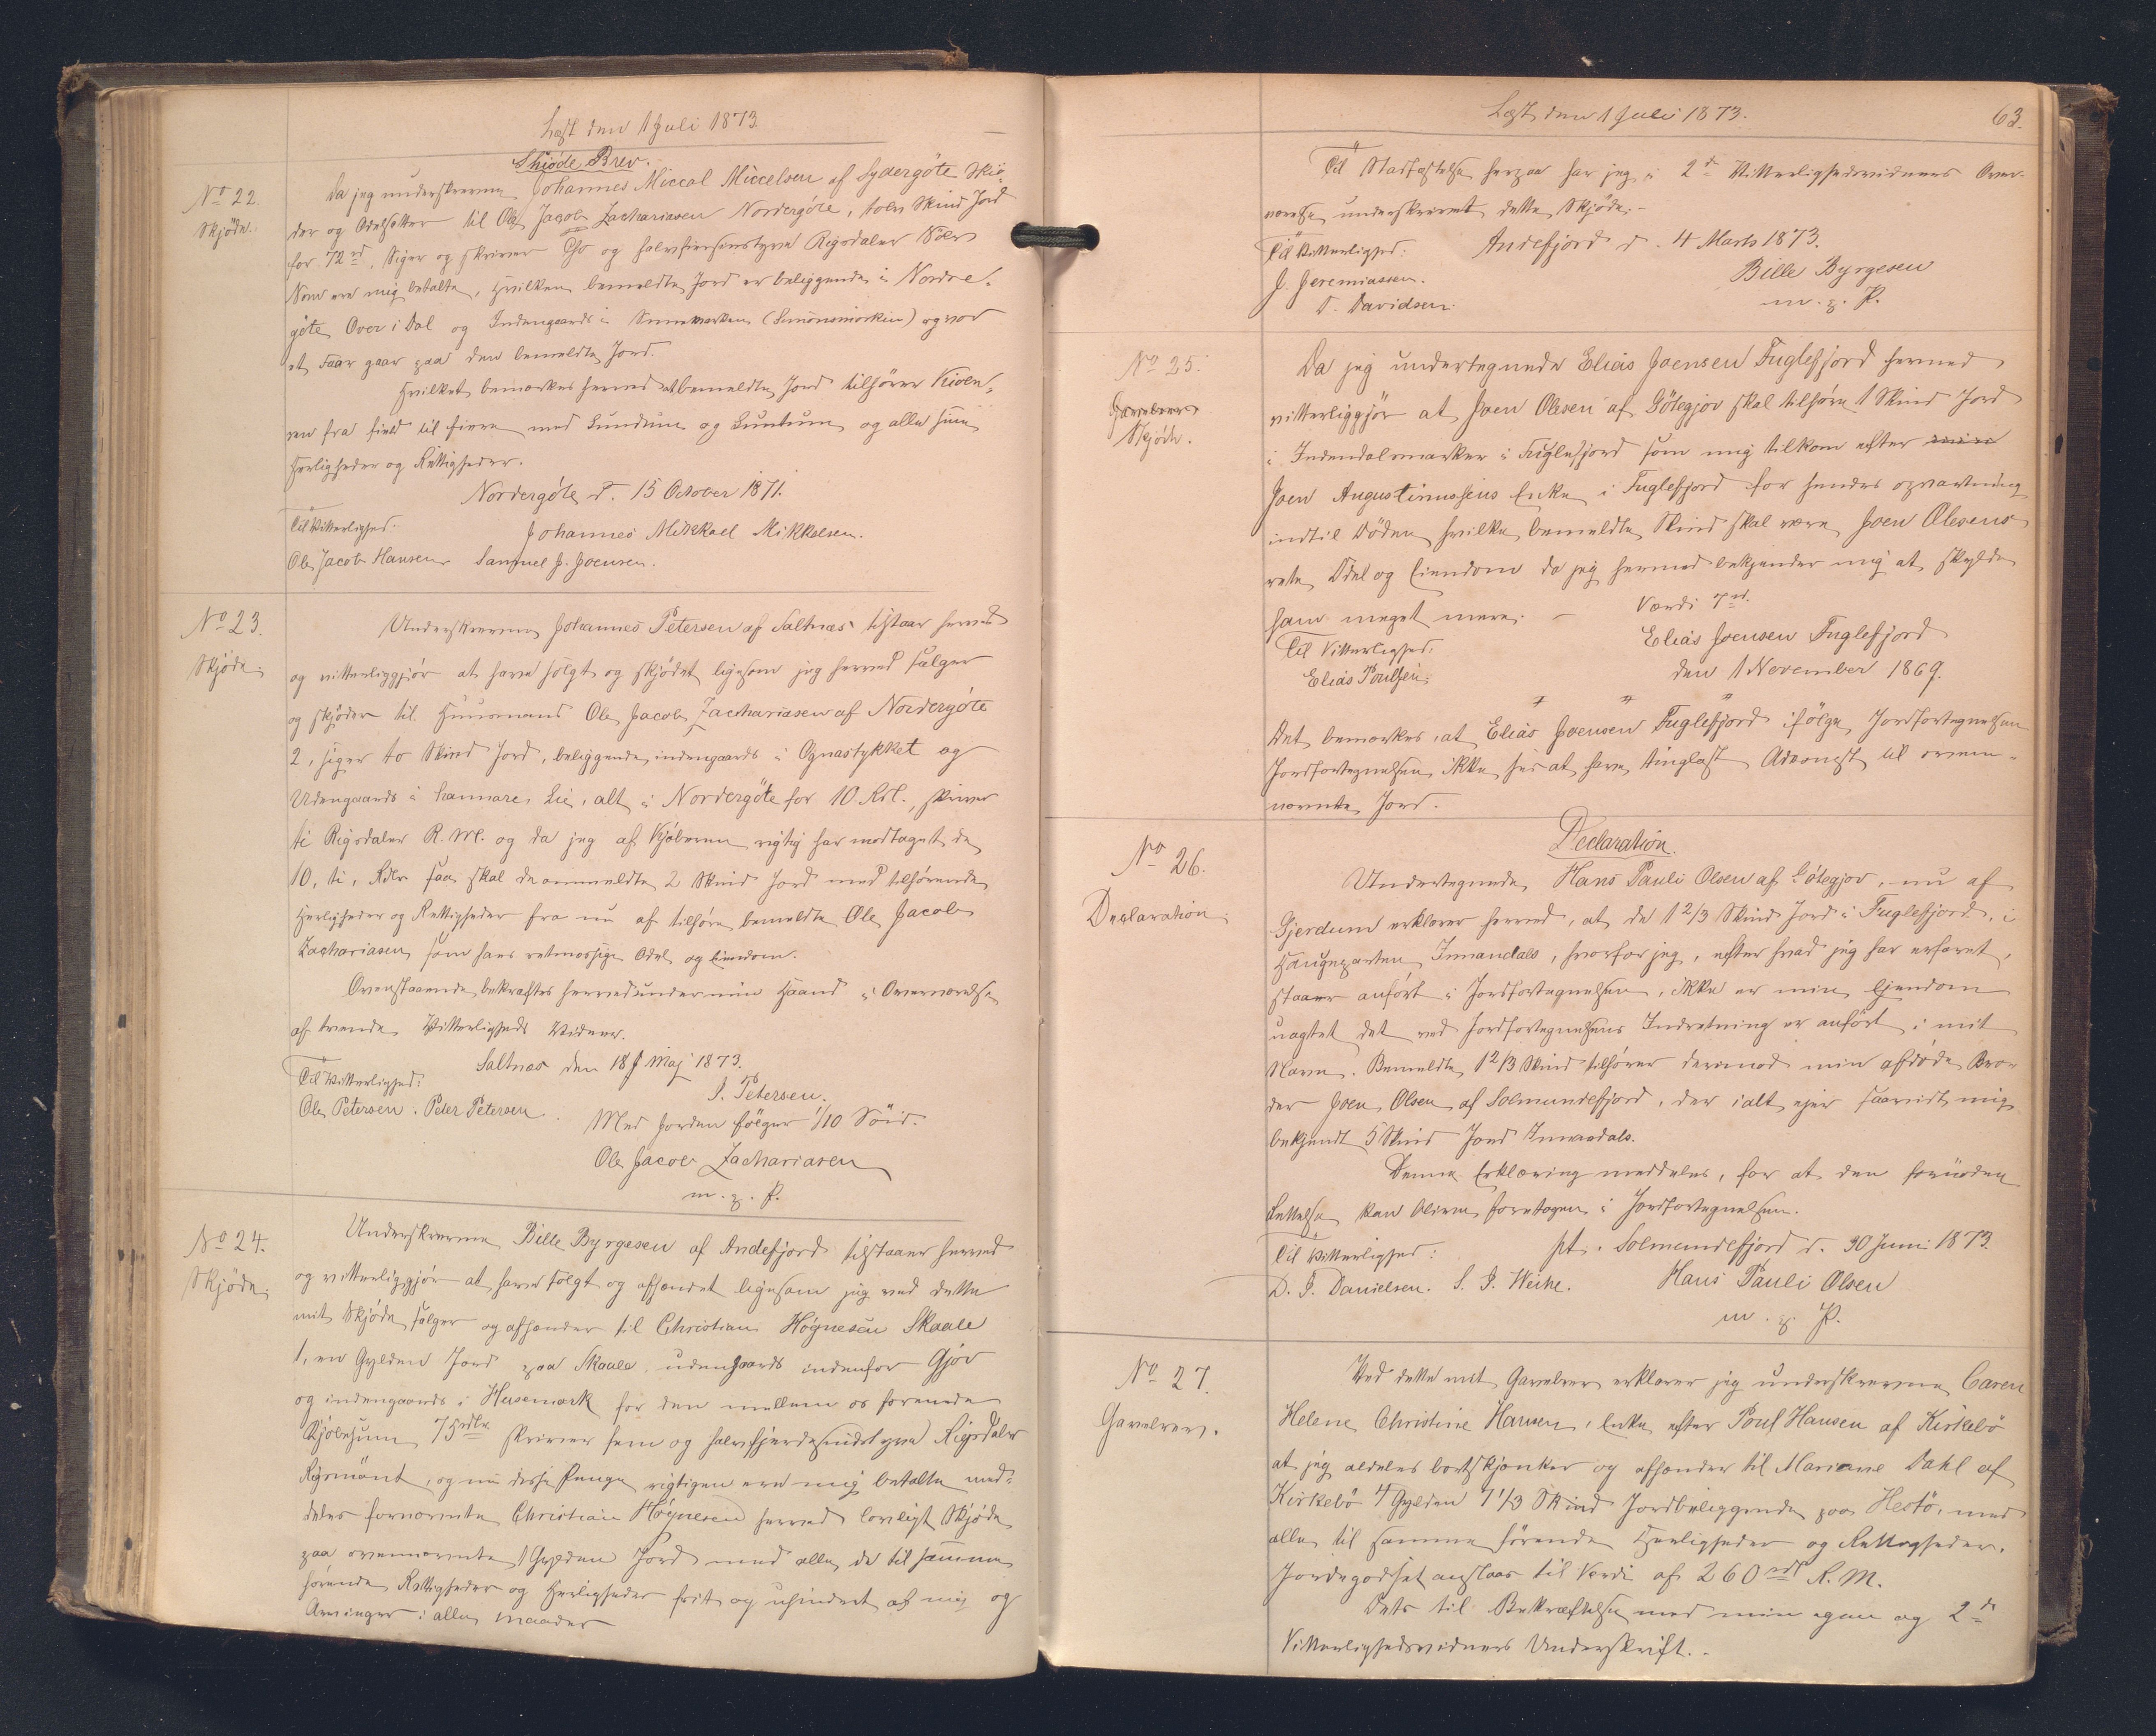 Læst den 1 Juli 1873.
Skiöde Brev.
No 22.
Skjöde.
Da jeg underskrevne Johannes Miccal Miccelsen af Sydergöte Skiö-
der og Odelsetter til Ole Jacob Zachariasen Nordergöte, tolv Skind Jord
for 72 rd, Siger og skriver To og halvfiersenstyve Rigsdaler Sölv
Som ere mig betalte, hvilken bemeldte Jord er beliggende i Nordre-
göte Over i Dal og Indengaards i (Simonsmörkin) og
et Faar gaar paa den bemeldte Jord.
Hvilket bemærkes herved at bemeldte Jord tilhörer
fra field til fiere med Lundum og Luntum og alle sine
Herligheder og Rettigheder.
Nordergöte d. 15 October 1871.
Til Vitterlighed.
Johannes Mikkael Mikkelsen.
Ole Jacob Hansen Samuel J. Joensen.
No 23.
Skjöde.
Underskrevne Johannes Petersen af Saltnæs tilstaar herved
og vitterliggjör at have solgt og skjödet ligesom jeg herved sælger
og skjöder til Huusmand Ole Jacob Zachariasen af Nordergöte
2, siger to Skind Jord, beliggende indengaards i Ognastykket og
Udengaards i Lie, alt i Nordergöte for 10 Rdl., skriver
ti Rigsdaler R. M. og da jeg af Kjöberen rigtig har modtaget de
10, ti, Rdlr saa skal de ommeldte 2 Skind Jord med tilhörende
Herligheder og Rettigheder fra nu af tilhöre bemeldte Ole Jacob
Zachariasen som hans retmæssige Odel og Eiendom.
Ovenstaaende bekræftes herved under min Haand i Overværelse
af tvende Vitterligheds Vidner.
Saltnæs den 18 Maj 1873.
Til Vitterlighed:
J. Petersen.
Ole Petersen. Peter Petersen.
Med Jorden fölger 1/10 Söid.
Ole Jacob Zachariasen
m. p. P.
No 24.
Skjöde.
Underskrevne Bille Byrgesen af Andefjord tilstaaer herved
og vitterliggjör at have solgt og afhændet ligesom jeg ved dette
mit Skjöde sælger og afhænder til Christian Högnesen Skaale
1, en Gylden Jord paa Skaale udengaards indenfor Gjöv
og indengaards i Husemark for den mellem os forenede
Kjöbesum 75 rdlr skriver fem og halvfjerdesindstyve Rigsdaler
Rigsmönt, og nu disse Penge rigtigen ere mig betalte med-
deles fornævnte Christian Högnesen herved lovligt Skjöde
paa ovennævnte 1 Gylden Jord med alle de til samme
hörende Rettigheder og Herligheder frit og uhindret af mig og
Arvinger i alle Maader
Læst den 1 Juli 1873.
63.
Til Stadfæstelse herpaa har jeg i 2de Vitterlighedsvidners Over-
værelse underskrevet dette Skjöde.-
Til Vitterlighed:
Andefjord d. 4 Marts 1873.
J. Jeremiassen.
Bille Byrgesen
D. Davidsen.
m. p. P.
No 25.
Gavebrev
Skjöde.
Da jeg undertegnede Elias Joensen Fuglefjord hermed
vitterliggjör at Joen Olesen af Götegjov skal tilhöre 1 Skind Jord
i Indendalsmarker i Fuglefjord som mig tilkom efter
Joen Augustinussens Enke i Fuglefjord for hendes opvartning
indtil Döden hvilke bemeldte Skind skal være Joen Olesens
rete Odel og Eiendom da jeg hermed bekjender mig at skylde
ham meget mere. -
Værdi 7 rd.
Til Vitterlighed:
Elias Joensen Fuglefjord
Elias Poulsen.
den 1 November 1869.
Det bemærkes, at Elias Joensen Fuglefjord ifölge Jordfortegnelsen
Jordfortegnelsen ikke ses at have tinglæst Adkomst til oven-
nævnte Jord.
No 26.
Declaration.
Declaration.
Undertegnede Hans Pauli Olsen af Götegjov, nu af
Gjerdum erklærer herved, at de 1 2/3 Skind Jord i Fuglefjord, i
Haugeparten Innandals, hvorfor jeg, efter hvad jeg har erfaret,
staaer anfört i Jordfortegnelsen, ikke er min Ejendom
uagtet det ved Jordfortegnelsens Indretning er anfört i mit
Navn. Bemeldte 1 2/3 Skind tilhörer derimod min afdöde Bro-
der Joen Olsen af Solmundefjord, der ialt ejer saavidt mig
bekjendt 5 Skind Jord Innandals.
Denne Erklæring meddeles, for at den fornödne
Rettelse kan blive foretagen i Jordfortegnelsen.
Til Vitterlighed:
pt. Solmundefjord d. 30 Juni 1873.
D. J. Danielsen. S. J. Weihe.
Hans Pauli Olsen
m. p. P.
No 27.
Gavebrev.
Ved dette mit Gavebrev erklærer jeg underskrevne Caren
Helene Christine Hansen, Enke efter Poul Hansen af Kirkebö
at jeg aldeles bortskjænker og afhænder til Mariane Dahl af
Kirkebö 4 Gylden 7 1/3 Skind Jord beliggende paa Hestö, med
alle til samme hörende Herligheder og Rettigheder.
Jordegodset anslaas til Værdi af 260 rdl R. M.
Dets til Bekræftelse med min egen og 2de
Vitterlighedsvidners Underskrift.-